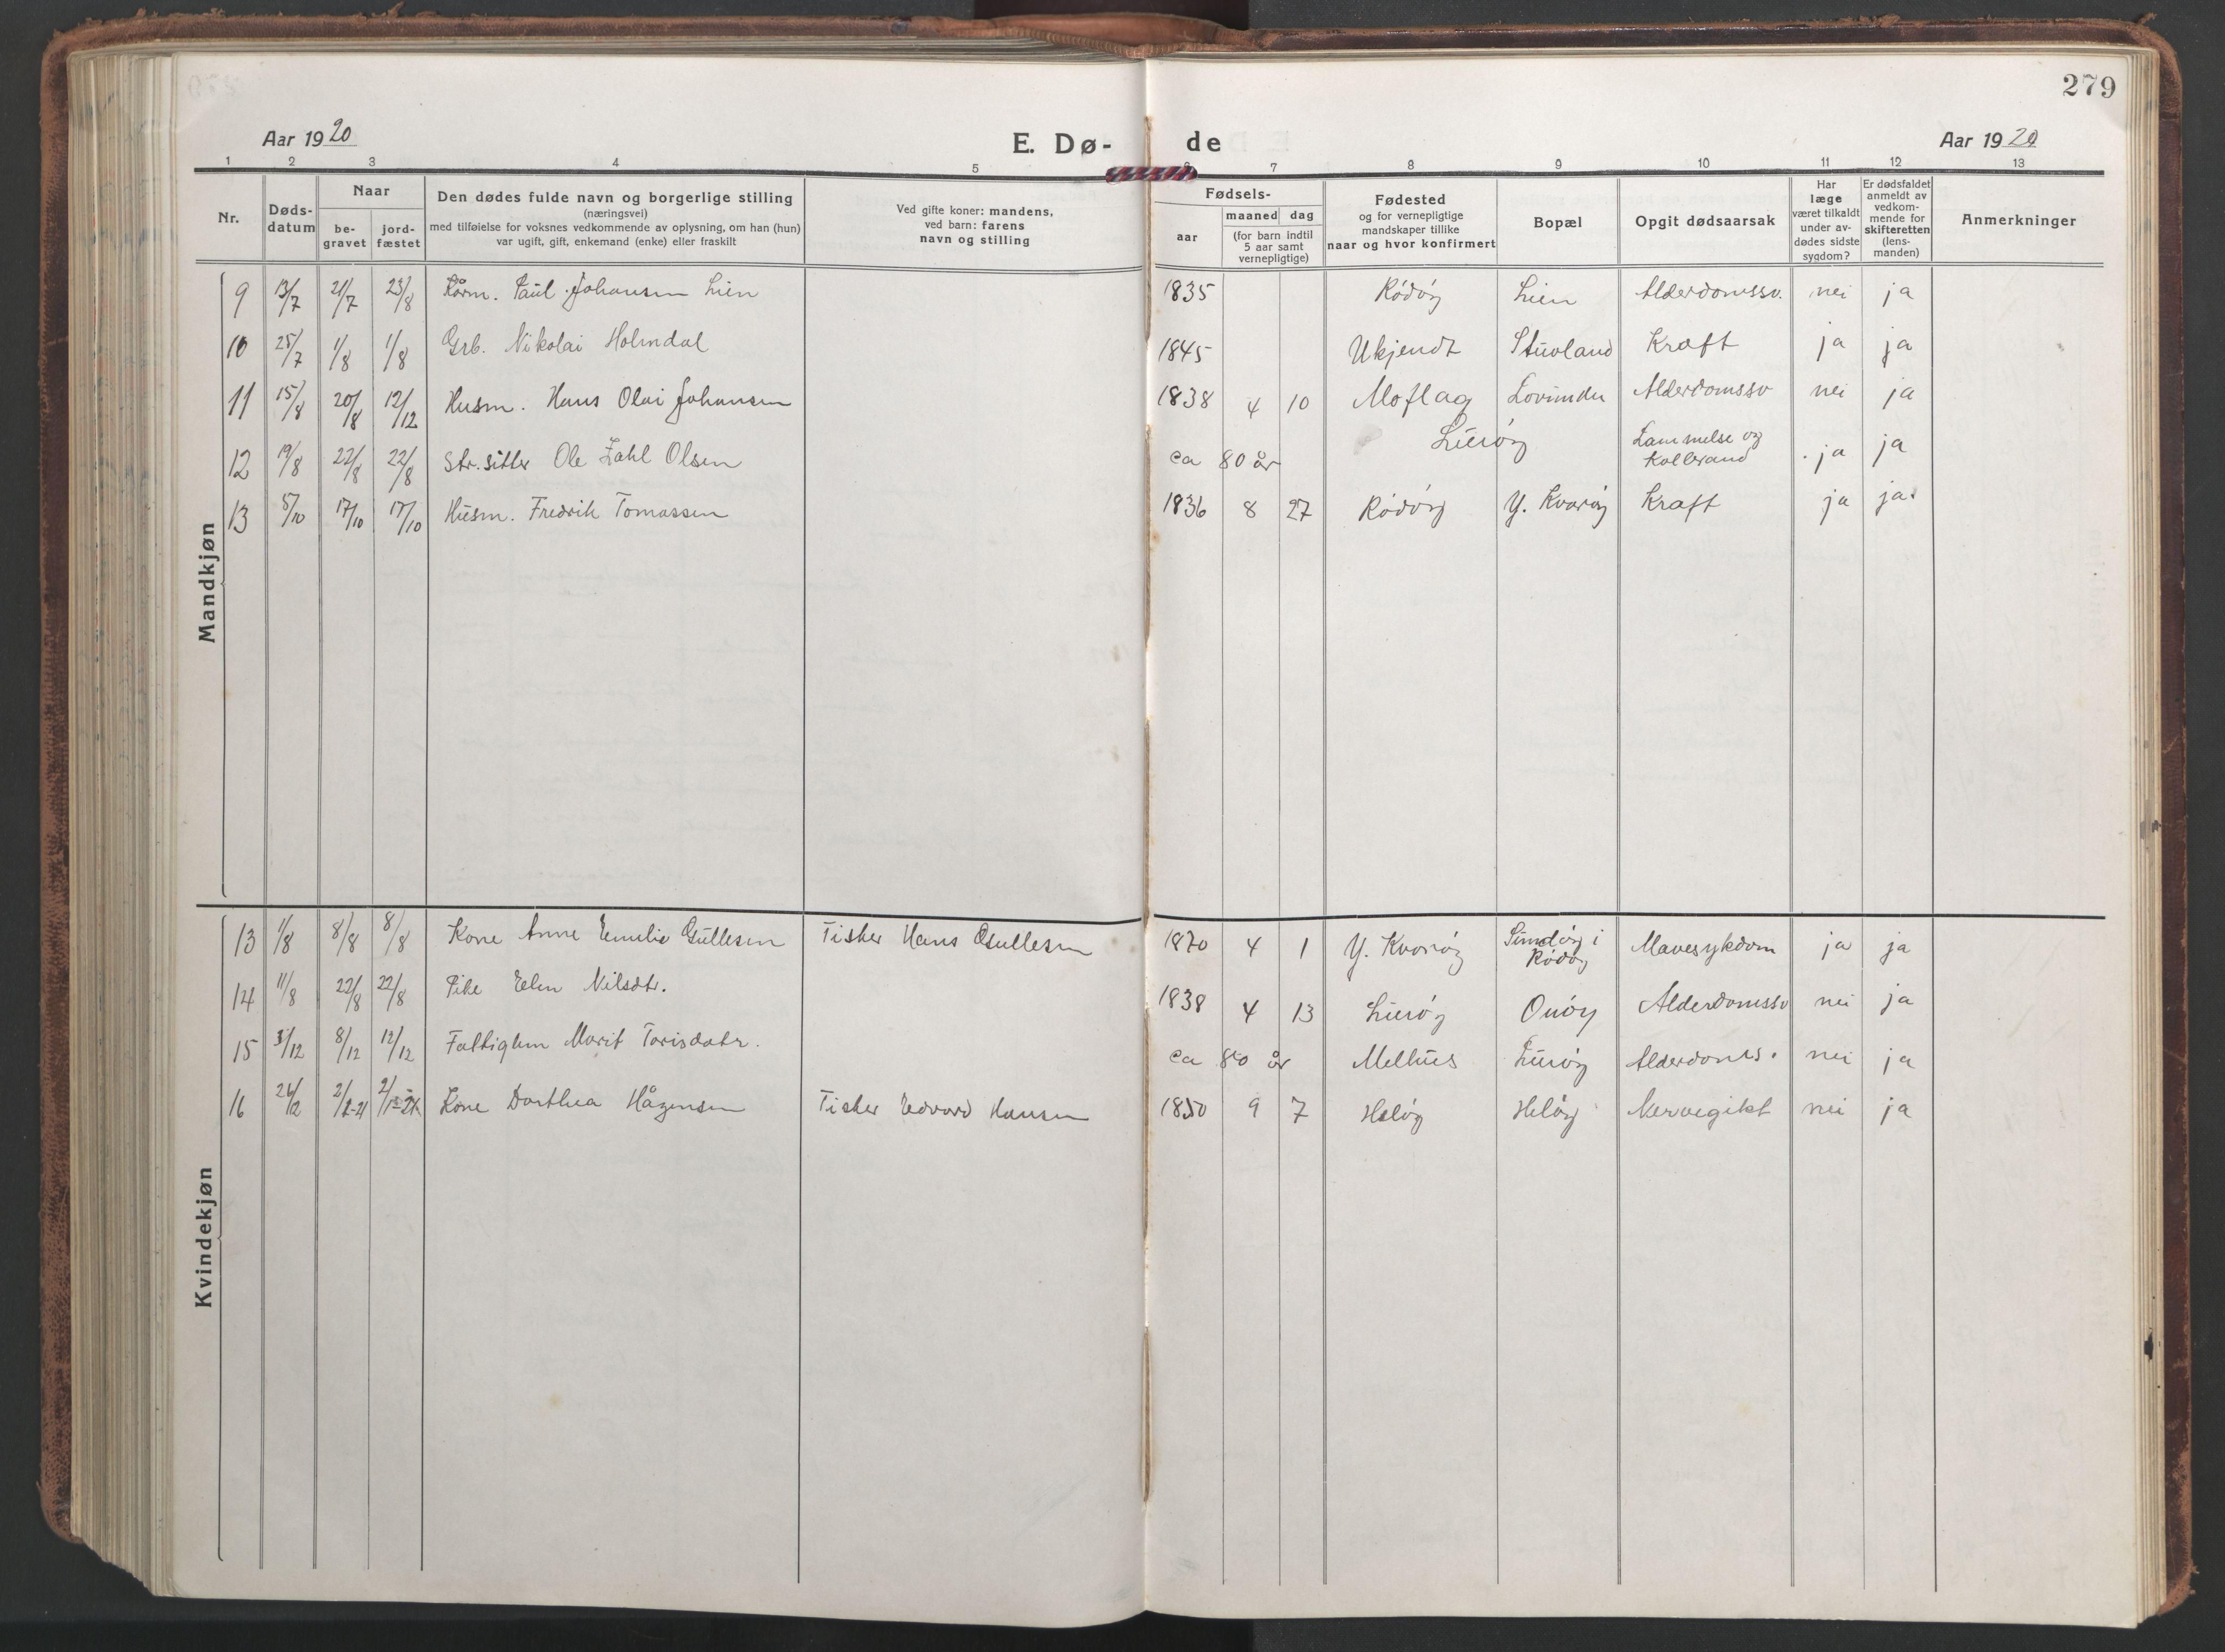 279
Aar 1920
E. Dø- de
Aar 1920
1 2 3 4 5 7 8 9 10 11 12 13
Nr.
Døds-
datum
Naar
be-
gravet
jord-
fæstet
Den dødes fulde navn og borgerlige stilling
(næringsvei)
med tilføielse for voksnes vedkommende av oplysning, om han (hun)
var ugift, gift, enkemand (enke) eller fraskilt
Ved gifte koner: mandens,
ved barn: farens
navn og stilling
Fødsels-
aar
maaned dag
(for barn indtil
5 aar samt
vernepligtige)
Fødested
og for vernepligtige
mandskaper tillike
naar og hvor konfirmert
Bopæl
Opgit dødsaarsak
Har
læge
været tilkaldt
under av-
dødes sidste
sygdom?
Er dødsfaldet
anmeldt av
vedkom-
mende for
skifteretten
(lens-
manden)
Anmerkninger
Mandkjøn
9 13/7 21/7 23/8 Kårm. Paul Johansen Lien 1835 Rødøy Lien Alderdomssv. nei ja
10 25/7 1/8 1/8 Grb. Nikolai Holmdal 1845 Ukjendt Stuvland Kræft ja ja
11 15/8 20/8 12/12 Husm. Hans Olai Johansen 1838 4 10 Moflag Lovunden Alderdomssv nei ja
12 19/8 22/8 22/8 Str.sitter Ole Zahl Olsen ca 80 år Lurøy Lammelse og
Kolbrand ja ja
13 5/10 17/10 17/10 Husm. Fredrik Tomassen 1836 8 27 Rødøy Y. Kvarøy Kræft ja ja.
Kvindekjøn
13 1/8 8/8 8/8 Kone Anne Emilie Gullesen Fisker Hans Gullesen 1870 4 1 Y. Kvarøy i
Rødøy Mavesykdom ja ja
14 11/8 22/8 22/8 Pike Elen Nilsdtr. 1838 4 13 Lurøy Onøy Alderdomssv nei ja
15 3/12 8/12 12/12 Fattiglem Marit Torisdatr. ca 80 år Melhus Lurøy Alderdoms. nei ja
16 2/1-21 2/1-21 Kone Dorthea Hågensen Fisker Edvard Hansen 1850 9 7 Heløy Heløy Nervegikt nei ja